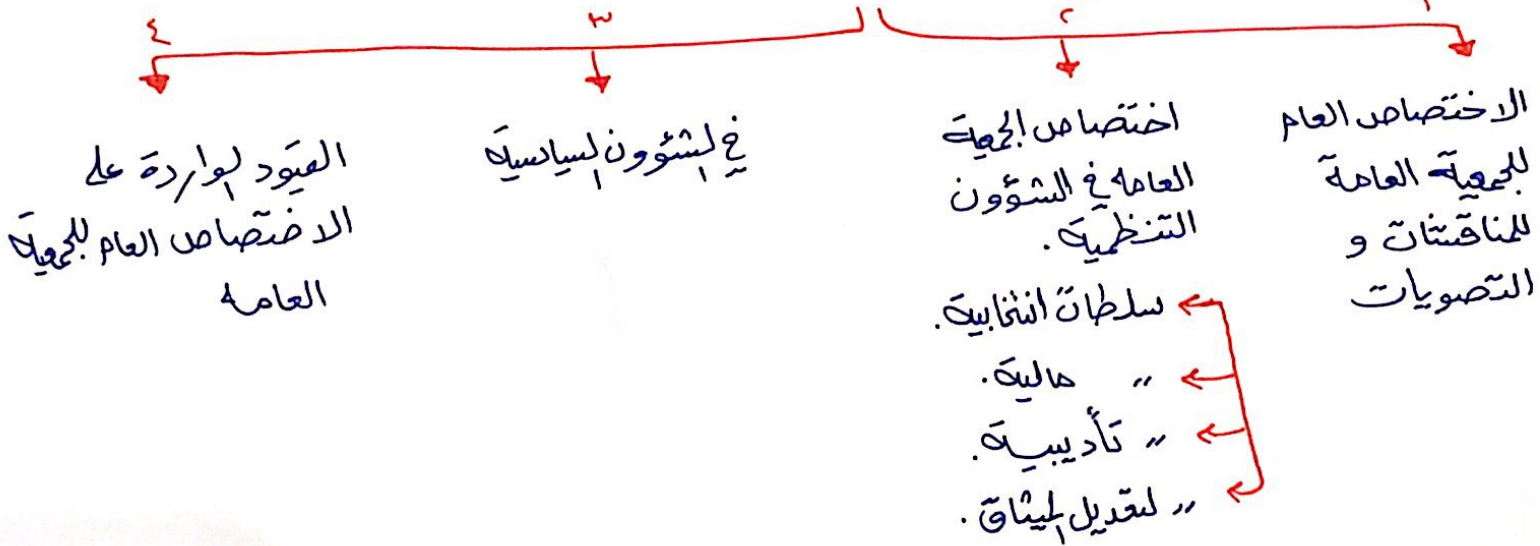 ١
الاختصاص العام
للجمعية العامة
للمناقشات و
التصويات
٢
اختصاص الجمعية
العامه في الشؤون
التنظمية.
سلطات انتخابية.
〃 مالية.
〃 تأديبية.
〃 لتعديل الميثاق.
٣
في الشئوون السياسية
٤
القيود الواردة على
الاختصاص العام للجمعية
العامه